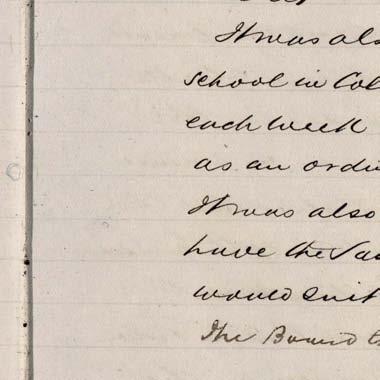 It was als
school in Col
each week
as an ordi
It was also
have the Sa
would suit
The Board